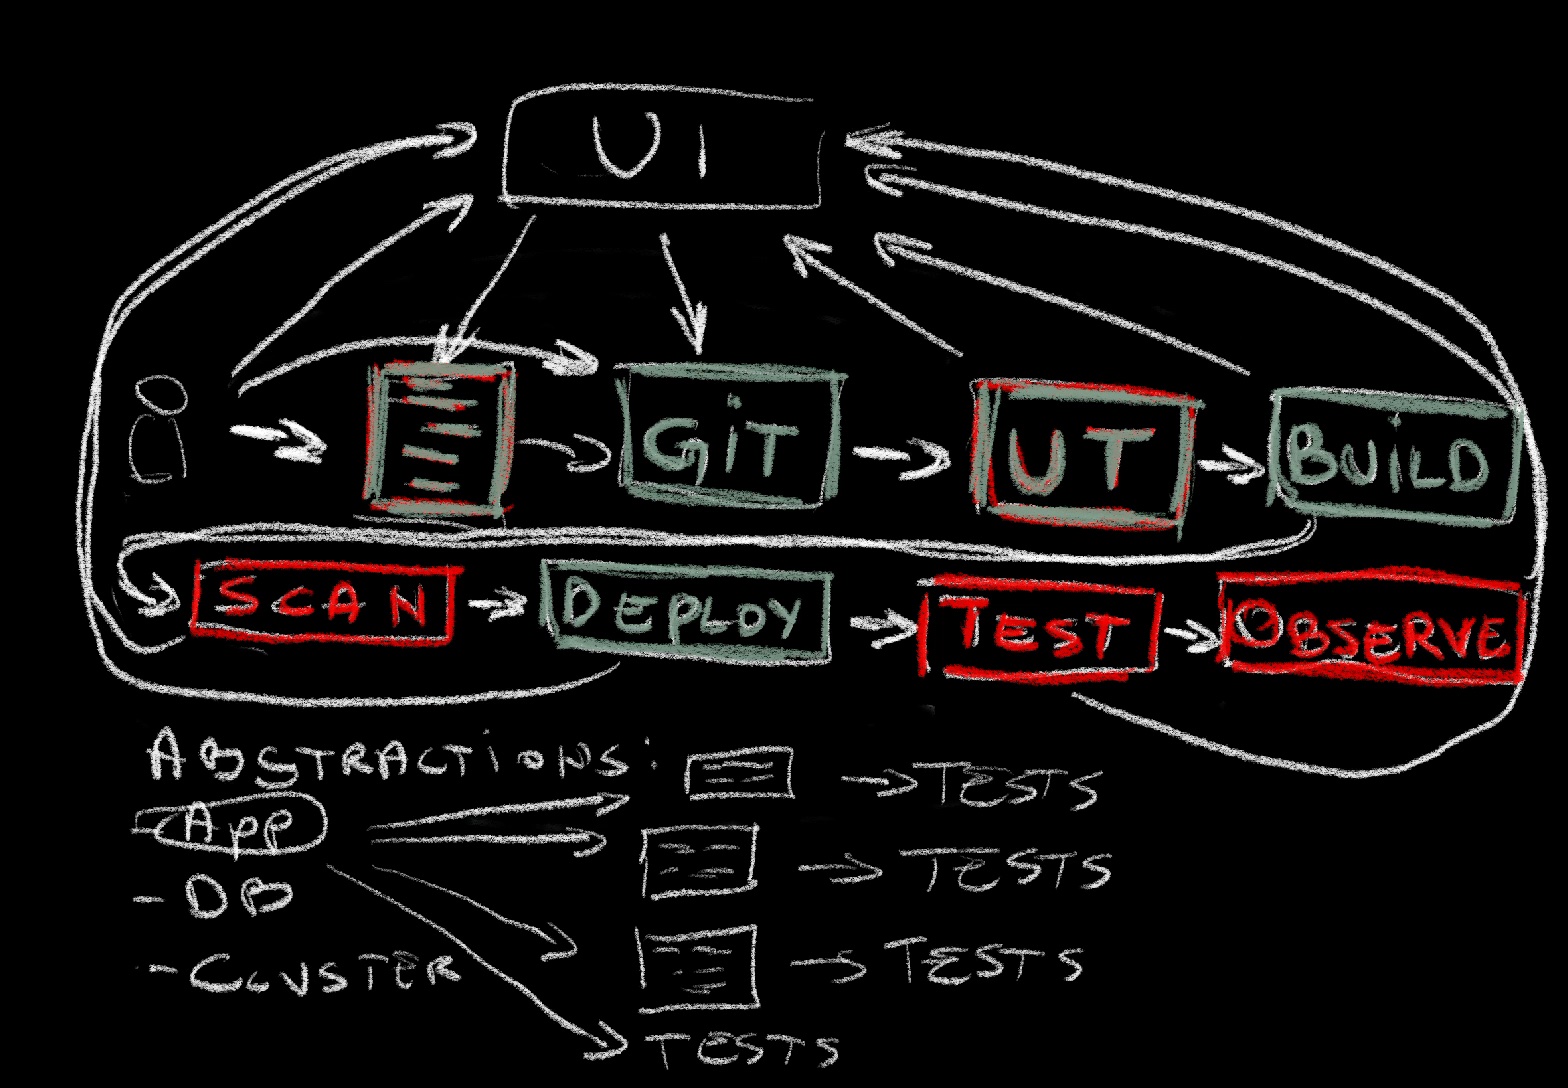 UI
GiT
UT
BUiLD
SCAN
DEPLOY
TEST
OBSERVE
ABSTRACTiONS:
- App
- DB
- CLUSTER
TESTS
TESTS
TESTS
TESTS